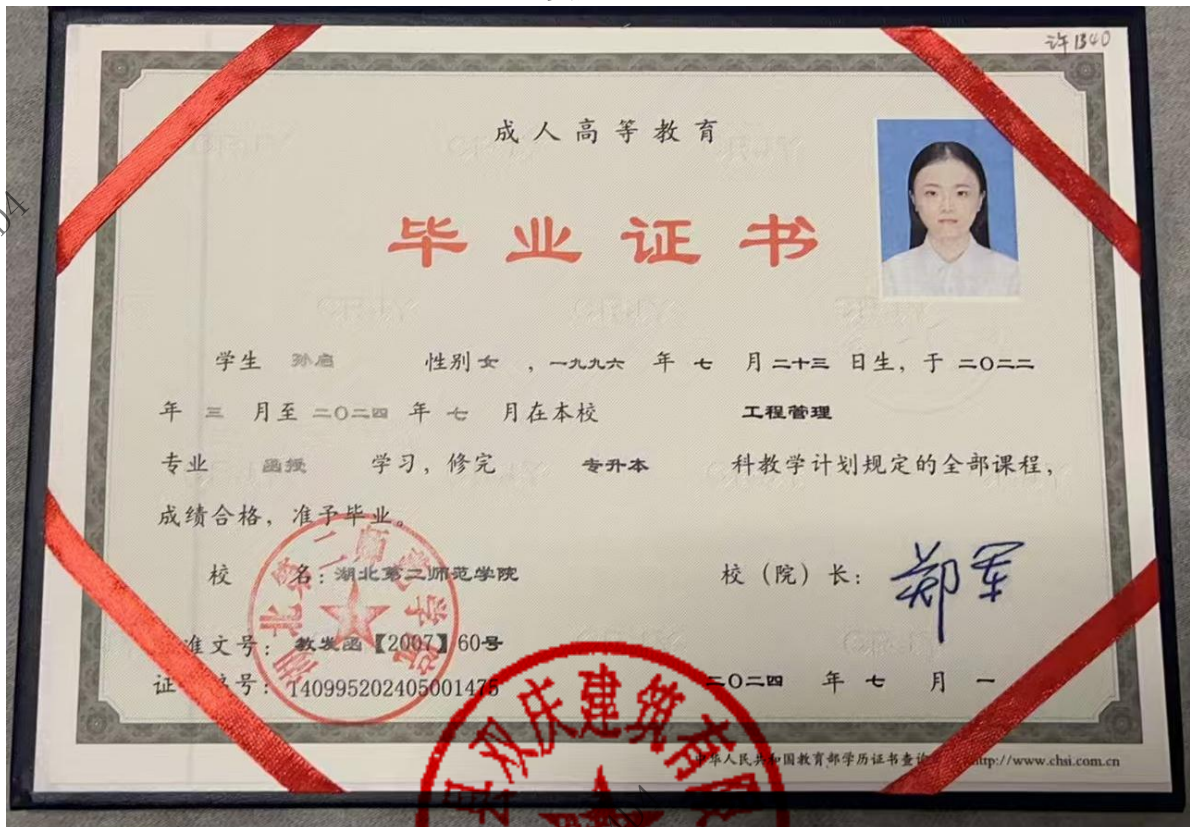 许1340
成人高等教育
毕业证书
学生 孙启 性别 女 ，一九九六 年 七 月 二十三 日生，于 二〇二二
年 三 月至 二〇二四 年 七 月在本校 工程管理
专业 函授 学习，修完 专升本 科教学计划规定的全部课程，
成绩合格，准予毕业。
校 名：湖北第二师范学院 校（院）长：郑军
准文号：教发函【2007】60号
证 号：T40995202405001475 二〇二四 年 七 月 一
中华人民共和国教育部学历证书查 http://www.chsi.com.cn
湖北第二师范学院
双庆建筑有限
04